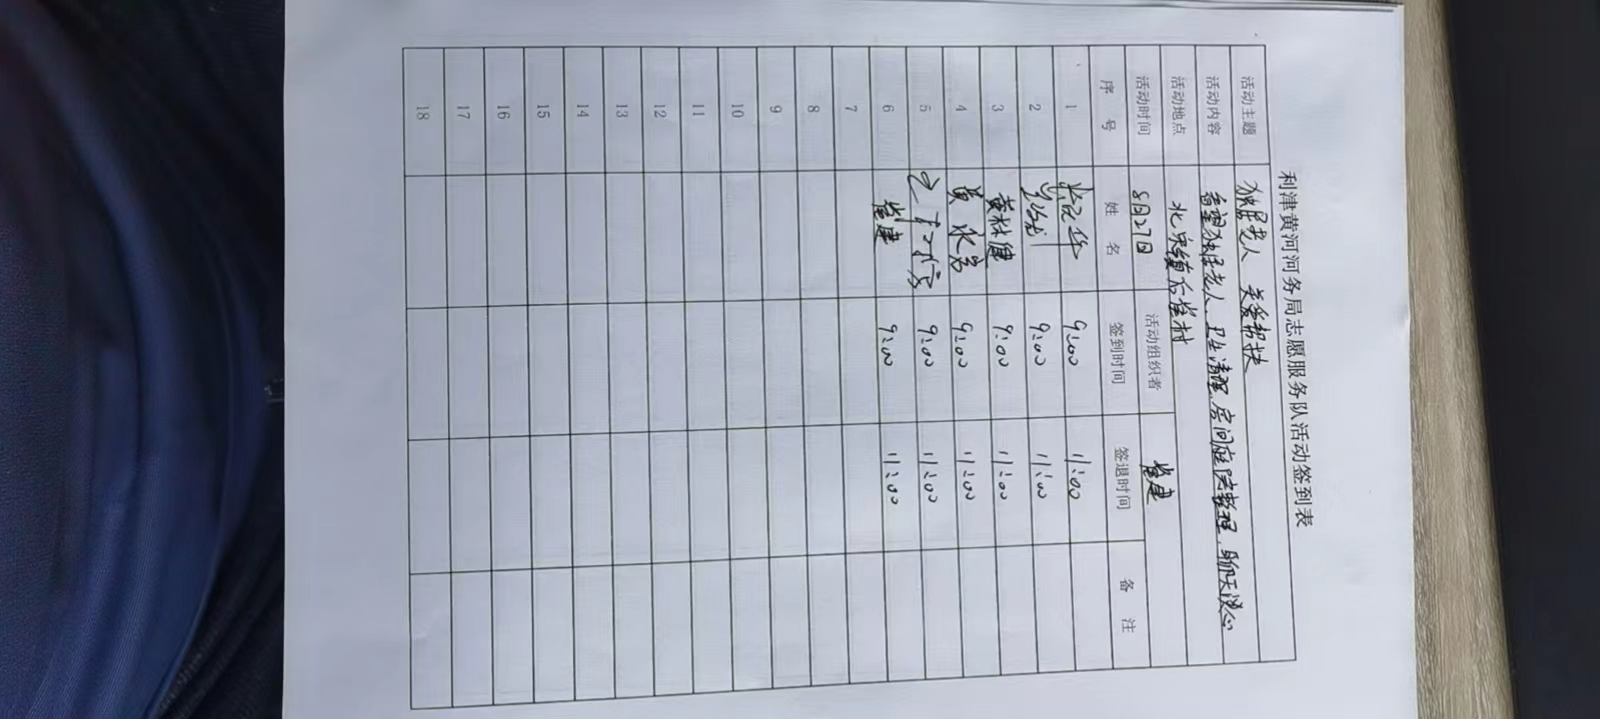 利津黄河河务局志愿服务队活动签到表
活动主题 独居老人 关爱帮扶
活动内容 看望独居老人、卫生清理、房间庭院整理、聊天谈心
活动地点 北宋镇后崔村
活动时间 8月27日 活动组织者 崔建
序号 姓名 签到时间 签退时间 备注
1 9:00 11:00
2 9:00 11:00
3 黄林健 9:00 11:00
4 黄永岩 9:00 11:00
5 9:00 11:00
6 崔建 9:00 11:00
7
8
9
10
11
12
13
14
15
16
17
18